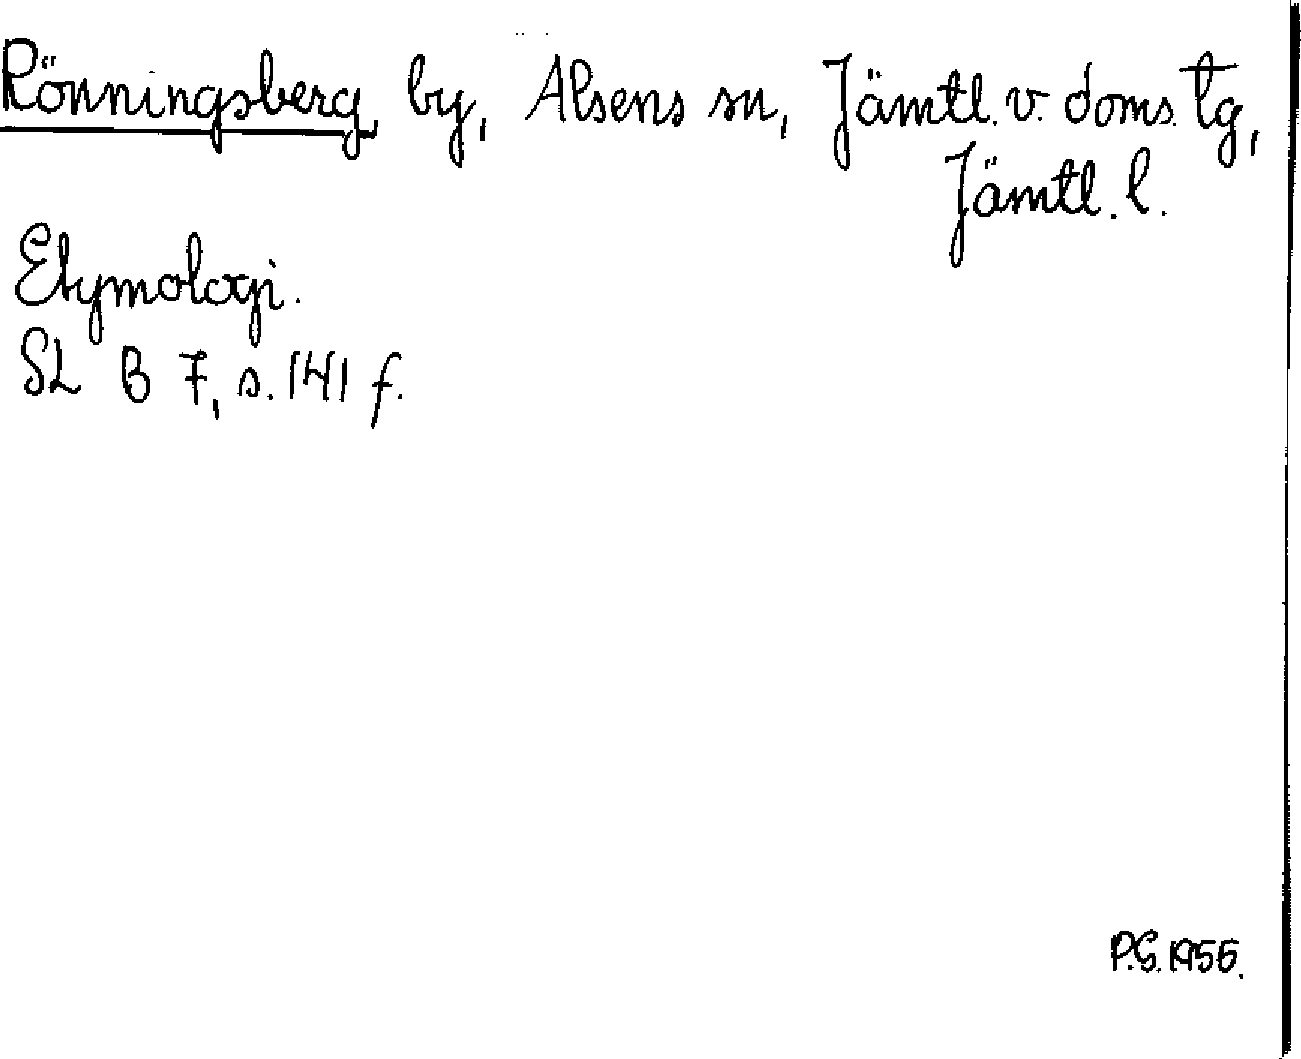 Rönningsberg, by, Alsens sn, Jämtl. v. doms. tg,
Jämtl. l.
Etymologi.
SL B 7, s. 141 f.
P.G. 1956.